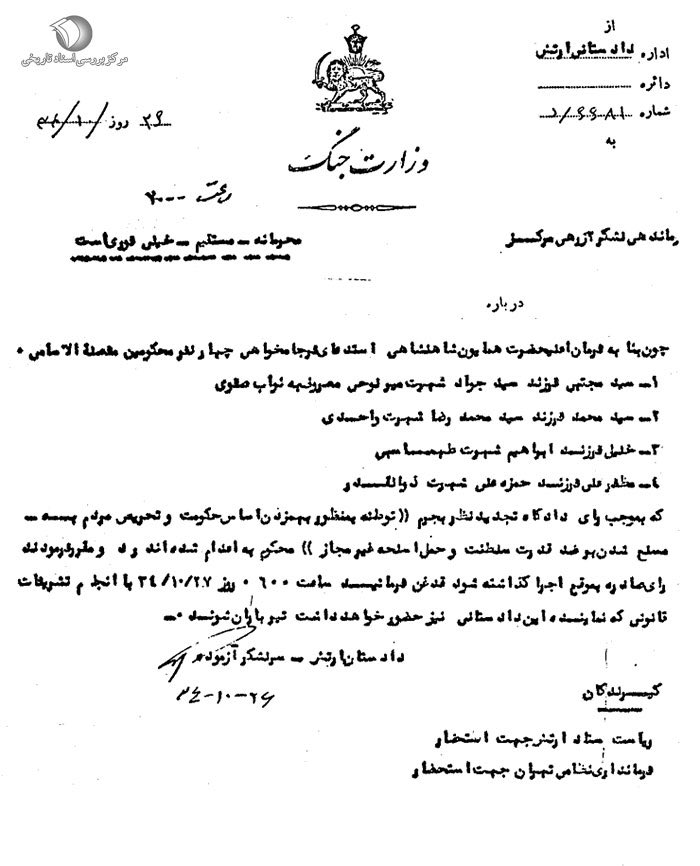 مرکز بررسی اسناد تاریخی
از
اداره دادستانی ارتش
دائره
شماره
به
روز
وزارت جنگ
رماندهی لشکر ۲ زرهی مرکز
محرمانه – مستقیم – خیلی فوری است
درباره
چون بنا به فرمان اعلیحضرت همایون شاهنشاهی استدعای فرجامخواهی چهار نفر محکومین مفصلة الاسامی ۰
۱– سید مجتبی فرزند سید جواد شهرت میرلوحی معروف به نواب صفوی
۲– سید محمد فرزند سید محمد رضا شهرت واحدی
۳– خلیل فرزند ابراهیم شهرت طهماسبی
۴– مظفر علی فرزند حمزه علی شهرت ذوالقدر
که بموجب رای دادگاه تجدید نظر بجرم (( توطئه بمنظور بهمزدن اساس حکومت و تحریص مردم بمسـ –
مسلح شدن بر ضد قدرت سلطنت و حمل اسلحه غیر مجاز )) محکوم به اعدام شده اند رد و مقرر فرمودند
رای صادره بموقع اجرا گذاشته شود قدغن فرمائیـد ساعت ۰۶۰۰ روز ۳۴/۱۰/۲۷ با انجام تشریفات
قانونی که نماینده این دادستانی نیز حضور خواهد داشت تیر باران شوند ۰–
دادستان ارتش – سرلشکر آزموده
۳۴–۱۰–۲۶
گیرندگان
ریاست ستاد ارتش جهت استحضار
فرمانداری نظامی تهران جهت استحضار